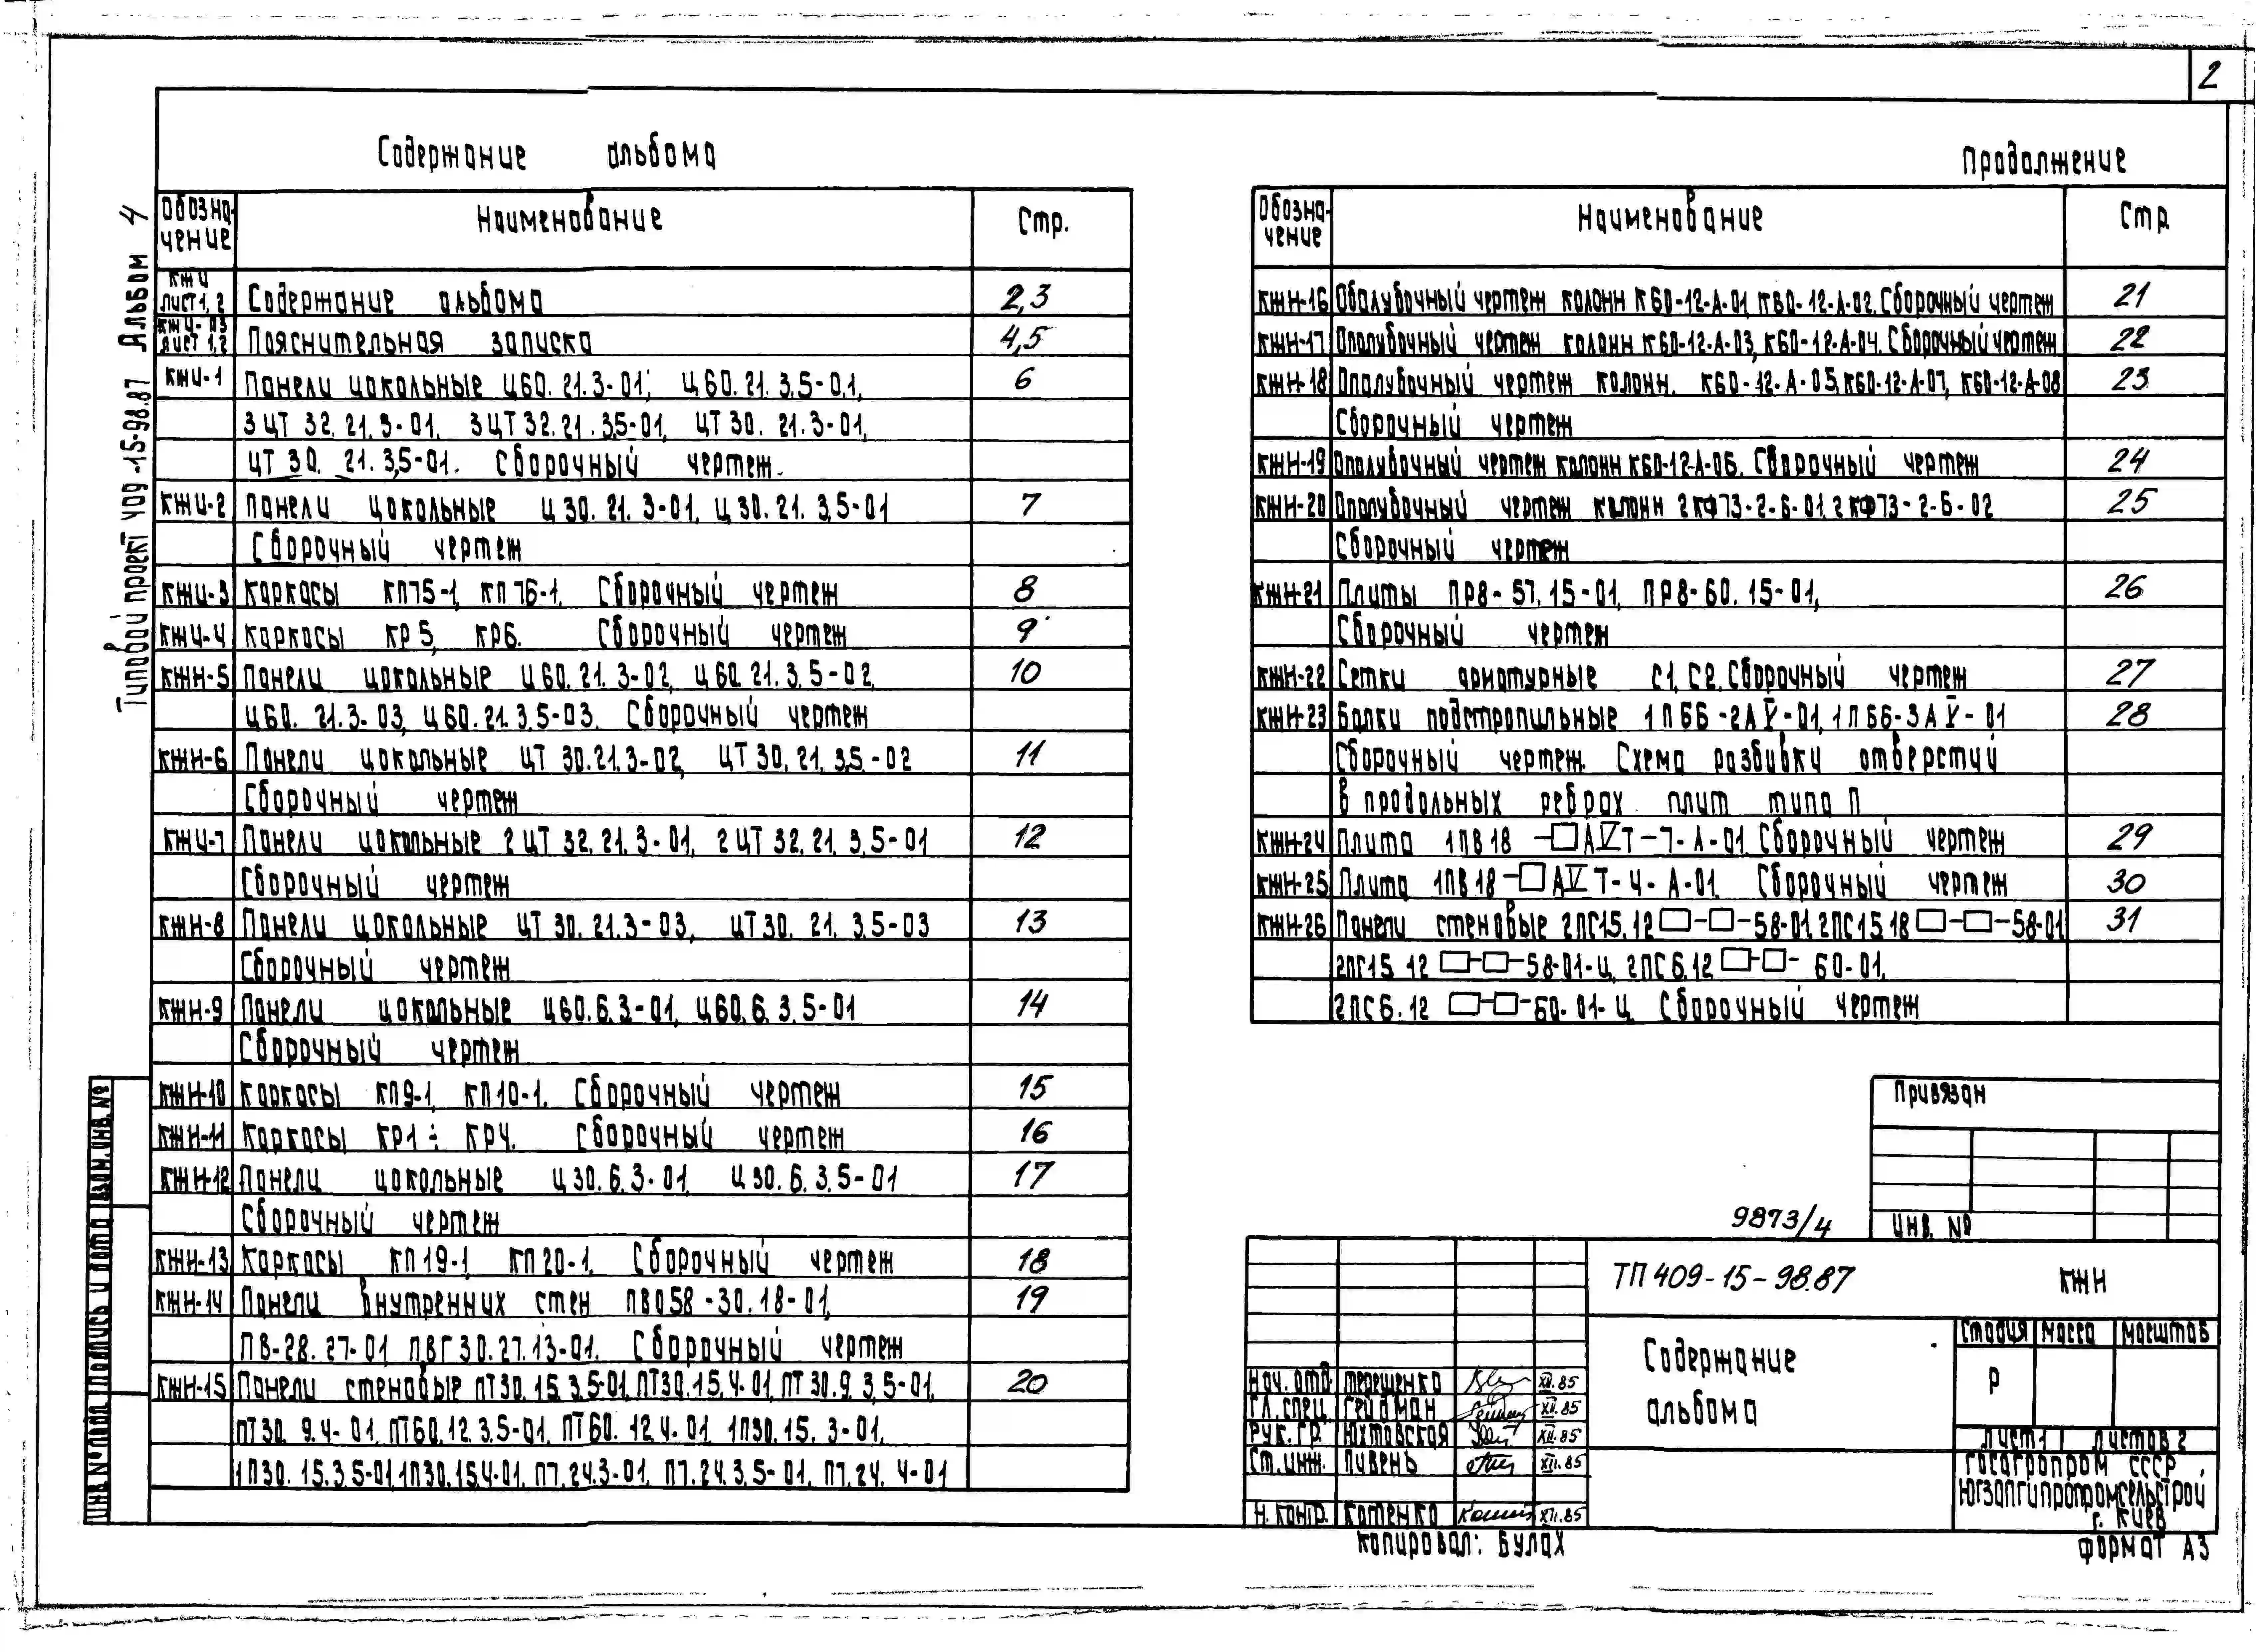 2
Содержание альбома
Обозна-
чение
Наименование
Стр.
КЖИ
лист 1, 2
Содержание альбома
2,3
КЖИ-ПЗ
лист 1,2
Пояснительная записка
4,5
КЖИ-1
Панели цокольные Ц60.21.3-01; Ц60.21.3.5-0.1,
6
3ЦТ 32.21.3-01, 3ЦТ32.21.3.5-01, ЦТ30.21.3-01,
ЦТ 30. 21.3,5-01. Сборочный чертеж.
КЖИ-2
Панели цокольные Ц 30.21.3-01, Ц 30.21.3,5-01
7
Сборочный чертеж
КЖИ-3
Каркасы КП75-1, КП 76-1. Сборочный чертеж
8
КЖИ-4
Каркасы КР5, КР6. Сборочный чертеж
9
КЖН-5
Панели цокольные Ц60.21.3-02, Ц60.21.3.5-02,
10
Ц60.21.3-03, Ц60.21.3.5-03. Сборочный чертеж
КЖН-6
Панели цокольные ЦТ 30.21.3-02, ЦТ30.21.3.5.-02
11
Сборочный чертеж
КЖИ-7
Панели цокольные 2ЦТ 32.21.3-01, 2ЦТ 32.21.3.5-01
12
Сборочный чертеж
КЖН-8
Панели цокольные ЦТ 30.21.3-03, ЦТ30.21.3.5-03
13
Сборочный чертеж
КЖН-9
Панели цокольные Ц60.6.3-01, Ц60.6.3.5-01
14
Сборочный чертеж
КЖН-10
Каркасы КП9-1, КП10-1. Сборочный чертеж
15
КЖН-11
Каркасы КР1÷КР4. Сборочный чертеж
16
КЖН-12
Панели цокольные Ц30.6.3-01, Ц30.6.3.5-01
17
Сборочный чертеж
КЖН-13
Каркасы КП19-1, КП20-1. Сборочный чертеж
18
КЖН-14
Панели внутренних стен ПВ058-30.18-01,
19
ПВ-28.27-01 ПВГ30.27.13-01. Сборочный чертеж
КЖН-15
Панели стеновые ПТ30.15.3.5-01, ПТ30.15.4-01, ПТ 30.9.3,5-01,
20
ПТ30.9.4-01, ПТ60.12.3.5-01, ПТ60.12.4-01, 1П30.15.3-01,
1П30.15.3.5-01, 1П30.15.4-01, П7.24.3-01, П7.24.3.5-01, П7.24.4-01
Продолжение
Обозна-
чение
Наименование
Стр
КЖН-16
Опалубочный чертеж колонн К60-12-А-01, К60-12-А-02. Сборочный чертеж
21
КЖН-17
Опалубочный чертеж колонн К60-12-А-03, К60-12-А-04. Сборочный чертеж
22
КЖН-18
Опалубочный чертеж колонн. К60-12-А-05, К60-12-А-07, К60-12-А-08
23
Сборочный чертеж
КЖН-19
Опалубочный чертеж колонн К60-12-А-06. Сборочный чертеж
24
КЖН-20
Опалубочный чертеж колонн 2КФ73-2-Б-01, 2КФ73-2-Б-02
25
Сборочный чертеж
КЖН-21
Плиты ПР8-57.15-01, ПР8-60.15-01,
26
Сборочный чертеж
КЖН-22
Сетки арматурные С1, С2. Сборочный чертеж
27
КЖН-23
Балки подстропильные 1ПБ6-2АV-01, 1ПБ6-3АV-01
28
Сборочный чертеж. Схема разбивки отверстий
в продольных ребрах плит типа П
КЖН-24
Плита 1ПВ18-□АVТ-7-А-01. Сборочный чертеж
29
КЖН-25
Плита 1ПВ18-□АVТ-4-А-01. Сборочный чертеж
30
КЖН-26
Панели стеновые 2ПС15.12□-□-58-01, 2ПС15.18□-□-58-01
31
2ПГ15.12□-□-58-01-Ц, 2ПС6.12□-□-60-01,
2ПС6.12□-□-60-01-Ц. Сборочный чертеж
Привязан
Инв. №
9873/4
ТП 409-15-98.87
КЖН
Содержание
альбома
Стадия Масса Масштаб
Р
Лист 1 Листов 2
Госагропром СССР
Югзапгипропромсельстрой
г. Киев
Нач. отд. Терещенко XII.85
Гл. спец. Гейдман XII.85
Рук. гр. Юхтовская XII.85
Ст. инж. Пивень XII.85
Н. контр. Котенко XII.85
Копировал: Булах
Формат А3
Типовой проект 409-15-98.87 Альбом 4
Инв № подл Подпись и дата Взам. инв. №